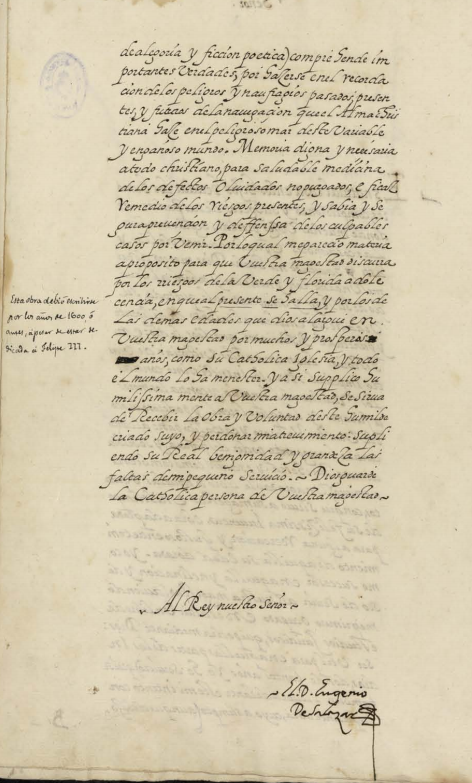 de alegoria y ficcion poetica) comprehende im
portantes Verdades, por hazerse en el recorda
cion de los peligros y naufragios pasados, presen
tes, y futuros de la navegacion que el Alma chris
tiana haze en el peligroso mar deste Variable
y engañoso mundo. Memoria digna y necesaria
a todo christiano, para saludable medicina
de los defectos Olvidados no purgados, eficaz
Remedio de los riesgos presentes, y sabia y se
gura prevencion y deffenssa de los culpables
casos por Venir. Por lo qual me parecio materia
a proposito para que Vuestra magestad discurra
por los riesgos de la Verde y florida adole
cencia, en que al presente se halla, y por los de
las demas edades que dios a la aqui en
Vuestra magestad por muchos y prosperos
años, como su Catholica Iglesia, y todo
el mundo lo ha menester. y asi supplico hu
milissima mente a Vuestra magestad, se sirva
de Recebir la Obra y Voluntad deste humilde
criado suyo, y perdonar mi atrevimiento: supli
endo su Real benignidad y grandeza las
faltas de mi pequeño servicio. ~ Dios guarde
la Catholica persona de Vuestra magestad ~
Esta obra debió escribirse
por los años de 1600, ó
antes, á pesar de estar de-
dicada á Felipe III.
~ Al Rey nuestro Señor ~
~ El. D. Eugenio
De Salazar